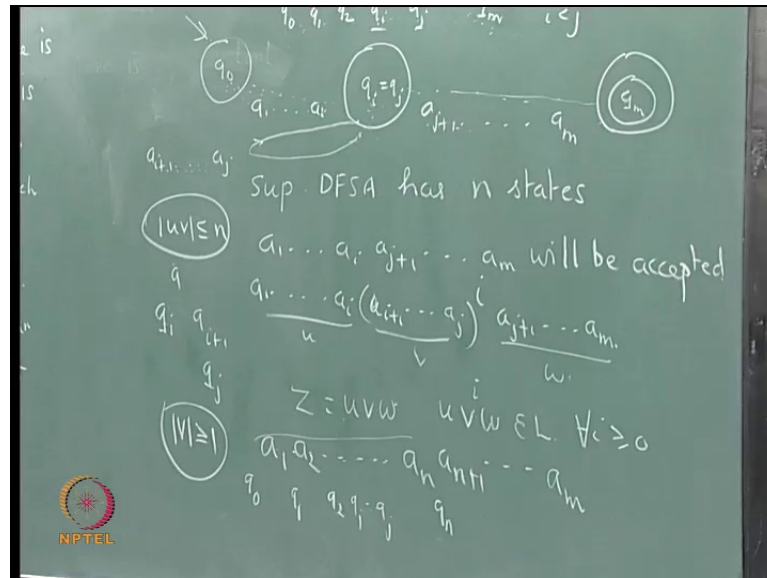 q₀ q₁ q₂ qᵢ qⱼ qₘ i < j
e is
is
q₀ qᵢ = qⱼ qₘ
a₁ .... aᵢ aⱼ₊₁ ..... aₘ
aᵢ₊₁ .... aⱼ
ch
Sup. DFSA has n states
|uv| ≤ n
a₁ ... aᵢ aⱼ₊₁ ... aₘ will be accepted
q
a₁ .... aᵢ (aᵢ₊₁ ... aⱼ)ⁱ aⱼ₊₁ ... aₘ
qᵢ qᵢ₊₁
u v w.
qⱼ
Z = uvw uvⁱw ε L. ∀i ≥ 0
|V| ≥ 1
a₁ a₂ ..... aₙ aₙ₊₁ ... aₘ
q₀ q₁ q₂ qᵢ qⱼ qₙ
NPTEL